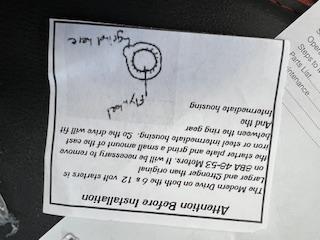 Attention Before Installation
The Modern Drive on both the 6 & 12 volt starters is
Larger and Stronger than original
on 8BA 49-53 Motors. It will be necessary to remove
the starter plate and grind a small amount of the cast
iron or steel intermediate housing. So the drive will fit
between the ring gear
And the
Intermediate housing
Flywheel
grind here
Steps to
Parts List